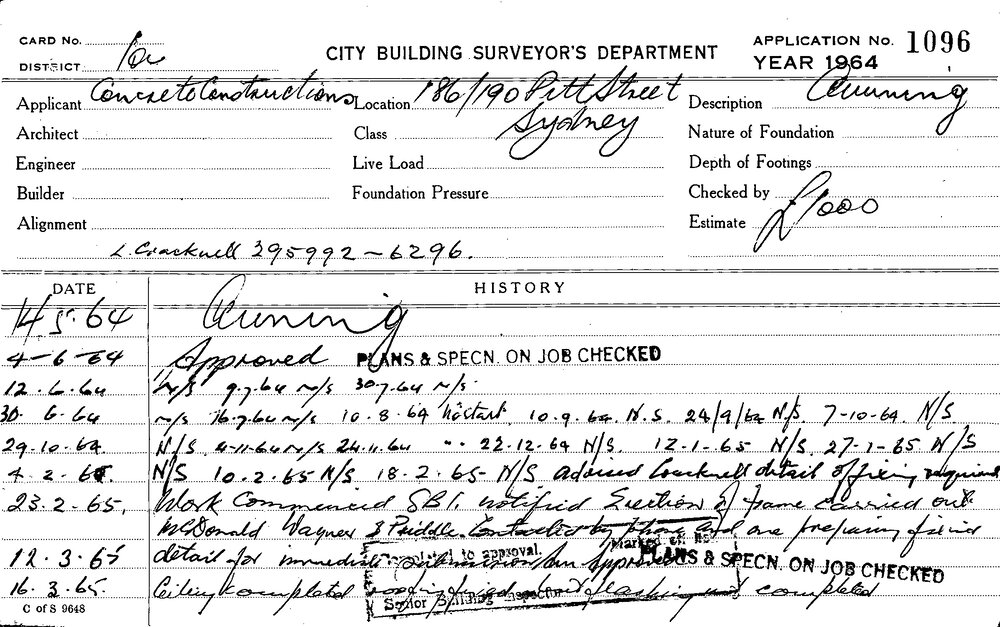 CARD No.
CITY BUILDING SURVEYOR'S DEPARTMENT
APPLICATION No. 1096
DISTRICT
YEAR 1964
Applicant Concrete Constructions Location 186/190 Pitt Street Description Awning
Sydney
Architect Class Nature of Foundation
Engineer Live Load Depth of Footings
Builder Foundation Pressure Checked by
Alignment Estimate £1000
L. Cracknell 295992 - 6296.
DATE HISTORY
14.5.64 Awning
4-6-64 Approved PLANS & SPECN. ON JOB CHECKED
12.6.64 N/S 9.7.64 N/S 30.7.64 N/S.
30.6.64 N/S 16.7.64 N/S 10.8.64 No start 10.9.64 N.S. 24/9/64 N/S 7-10-64 N/S
29.10.64 N/S 4-11-64 N/S 24.11.64 " 22.12.64 N/S. 12-1-65 N/S. 27-1-65 N/S
4.2.65 N/S 10.2.65 N/S 18.2.65 - N/S. advised Cracknell detail of fixing required
23.2.65. Work Commenced S.B.I. notified Erection of frame carried out
McDonald Wagner & Priddle Contacted by phone and are preparing fixing
12.3.65 detail for immediate submission for approval PLANS & SPECN. ON JOB CHECKED
to approval.
16.3.65. Ceiling completed roofing fixed flashing not completed
Senior Building Inspector
C of S 9648